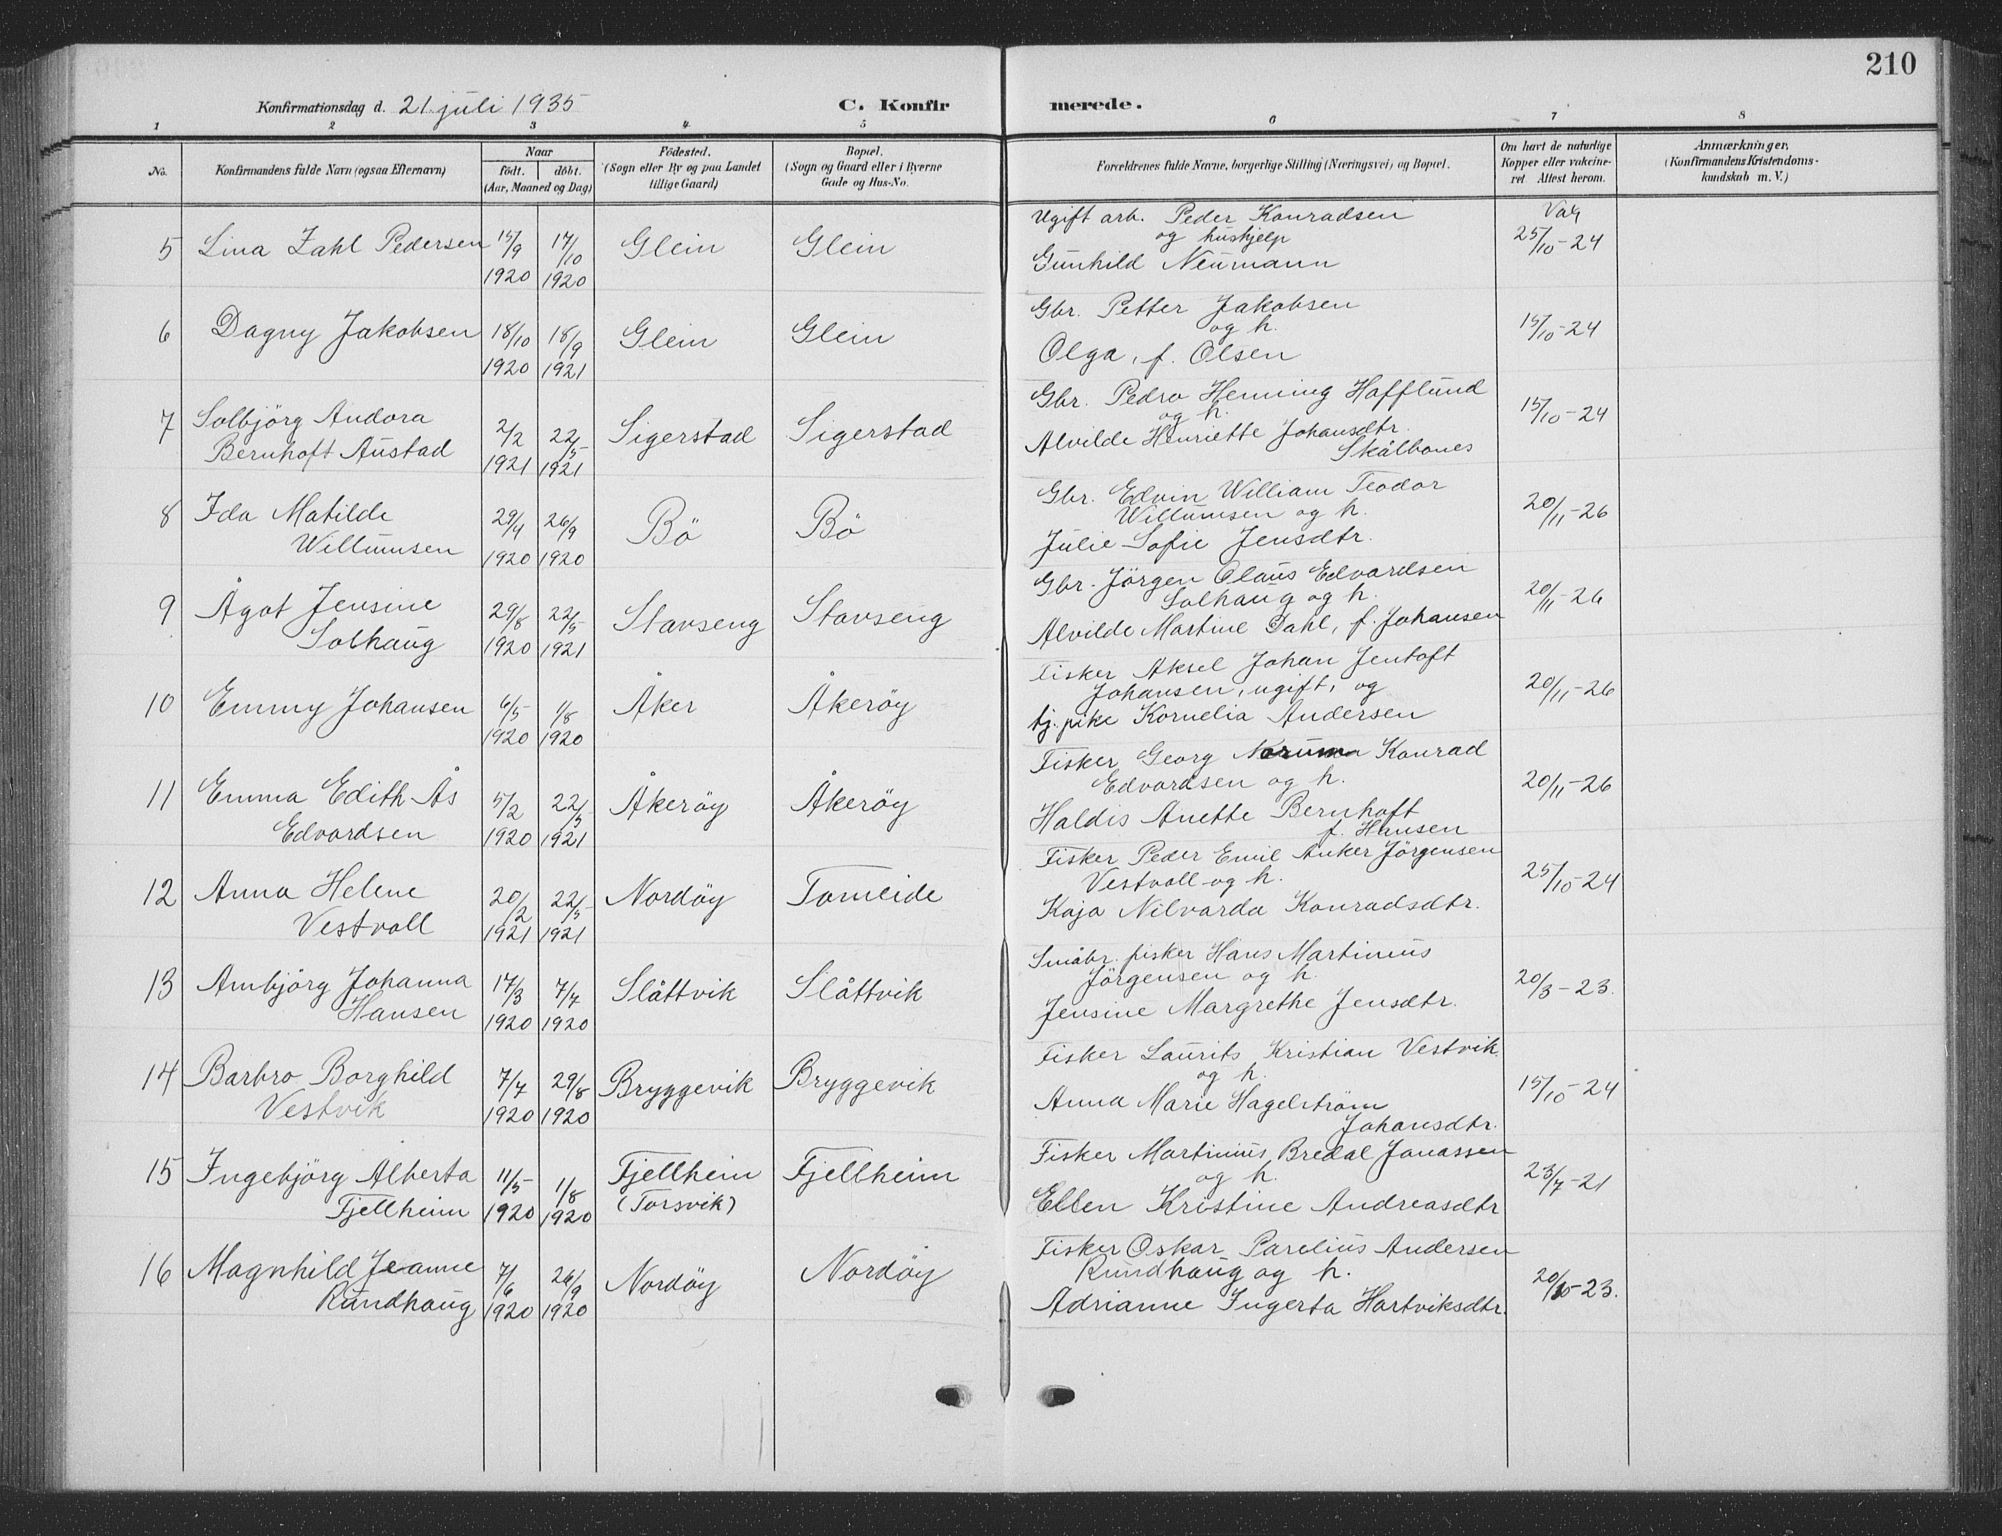 210
Konfirmationsdag d. 21 juli 1935
C. Konfirmerede.
1 2 3 4 5 6 7 8
No. Konfirmandens fulde Navn (ogsaa Efternavn) Naar født. døbt. (Aar, Maaned og Dag) Fødested. (Sogn eller By og paa Landet tillige Gaard) Bopæl. (Sogn og Gaard eller i Byerne Gade og Hus-No. Forældrenes fulde Navne, borgerlige Stilling (Næringsvei) og Bopæl. Om havt de naturlige Kopper eller vakcineret Attest herom. Anmærkninger. (Konfirmandens Kristendomskundskab m. V.)
5 Lina Zahl Pedersen 15/9 1920 17/10 1920 Glein Glein Ugift arb. Peder Konradsen Vak
og hushjelp 25/10-24
Gunhild Neumann
6 Dagny Jakobsen 18/10 1920 18/9 1921 Glein Glein Gbr. Petter Jakobsen
og h. 15/10-24
Olga, f. Olsen
7 Solbjörg Andora 2/2 1921 22/5 1921 Sigerstad Sigerstad Gbr. Pedro Henning Hafflund
Bernhoft Austad og h. 15/10-24
Alvilde Henriette Johansdtr.
Skålbones
8 Ida Matilde 29/4 1920 26/9 1920 Bö Bö Gbr. Edvin William Teodor
Willumsen Willumsen og h. 20/11-26
Julie Sofie Jensdtr.
9 Ågot Jensine 29/8 1920 22/5 1921 Stavseng Stavseng Gbr. Jörgen Olaus Edvardsen
Solhaug Solhaug og h. 20/11-26
Alvilde Martine Dahl, f. Johansen
10 Emmy Johansen 6/5 1920 1/8 1920 Åker Åkerøy Fisker Aksel Johan Jentoft
Johansen, ugift, og 20/11-26
tj. pike Kornelia Andersen
11 Emma Edith Ås 5/2 1920 22/5 1921 Åkerøy Åkerøy Fisker Georg Konrad
Edvardsen Edvardsen og h. 20/11-26
Haldis Anette Bernhoft
f. Hansen
12 Anna Helene 20/2 1921 22/5 1921 Nordøy Tomeide Fisker Peder Emil Anker Jörgensen
Vestvoll Vestvoll og h. 25/10-24
Kaja Nilvarda Konradsdtr.
13 Arnbjörg Johanna 17/3 1920 7/7 1920 Slåttvik Slåttvik Småbr. fisker Hans Martinius
Hansen Jörgensen og h. 20/3-23.
Jensine Margrethe Jensdtr.
14 Barbro Borghild 7/7 1920 29/8 1920 Bryggevik Bryggevik Fisker Laurits Kristian Vestvik
Vestvik og h. 15/10-24
Anna Marie Hagelström
Johansdtr.
15 Ingebjörg Alberta 11/5 1920 1/8 1920 Fjellheim Fjellheim Fisker Martinius Bredal Jonassen
Fjellheim (Torsvik) og h. 23/7-21
Ellen Kristine Andreasdtr
16 Magnhild Jeanne 7/6 1920 26/9 1920 Nordøy Nordøy Fisker Oskar Parelius Andersen
Rundhaug Rundhaug og h. 20/10-23.
Adrianne Ingerta Hartviksdtr.